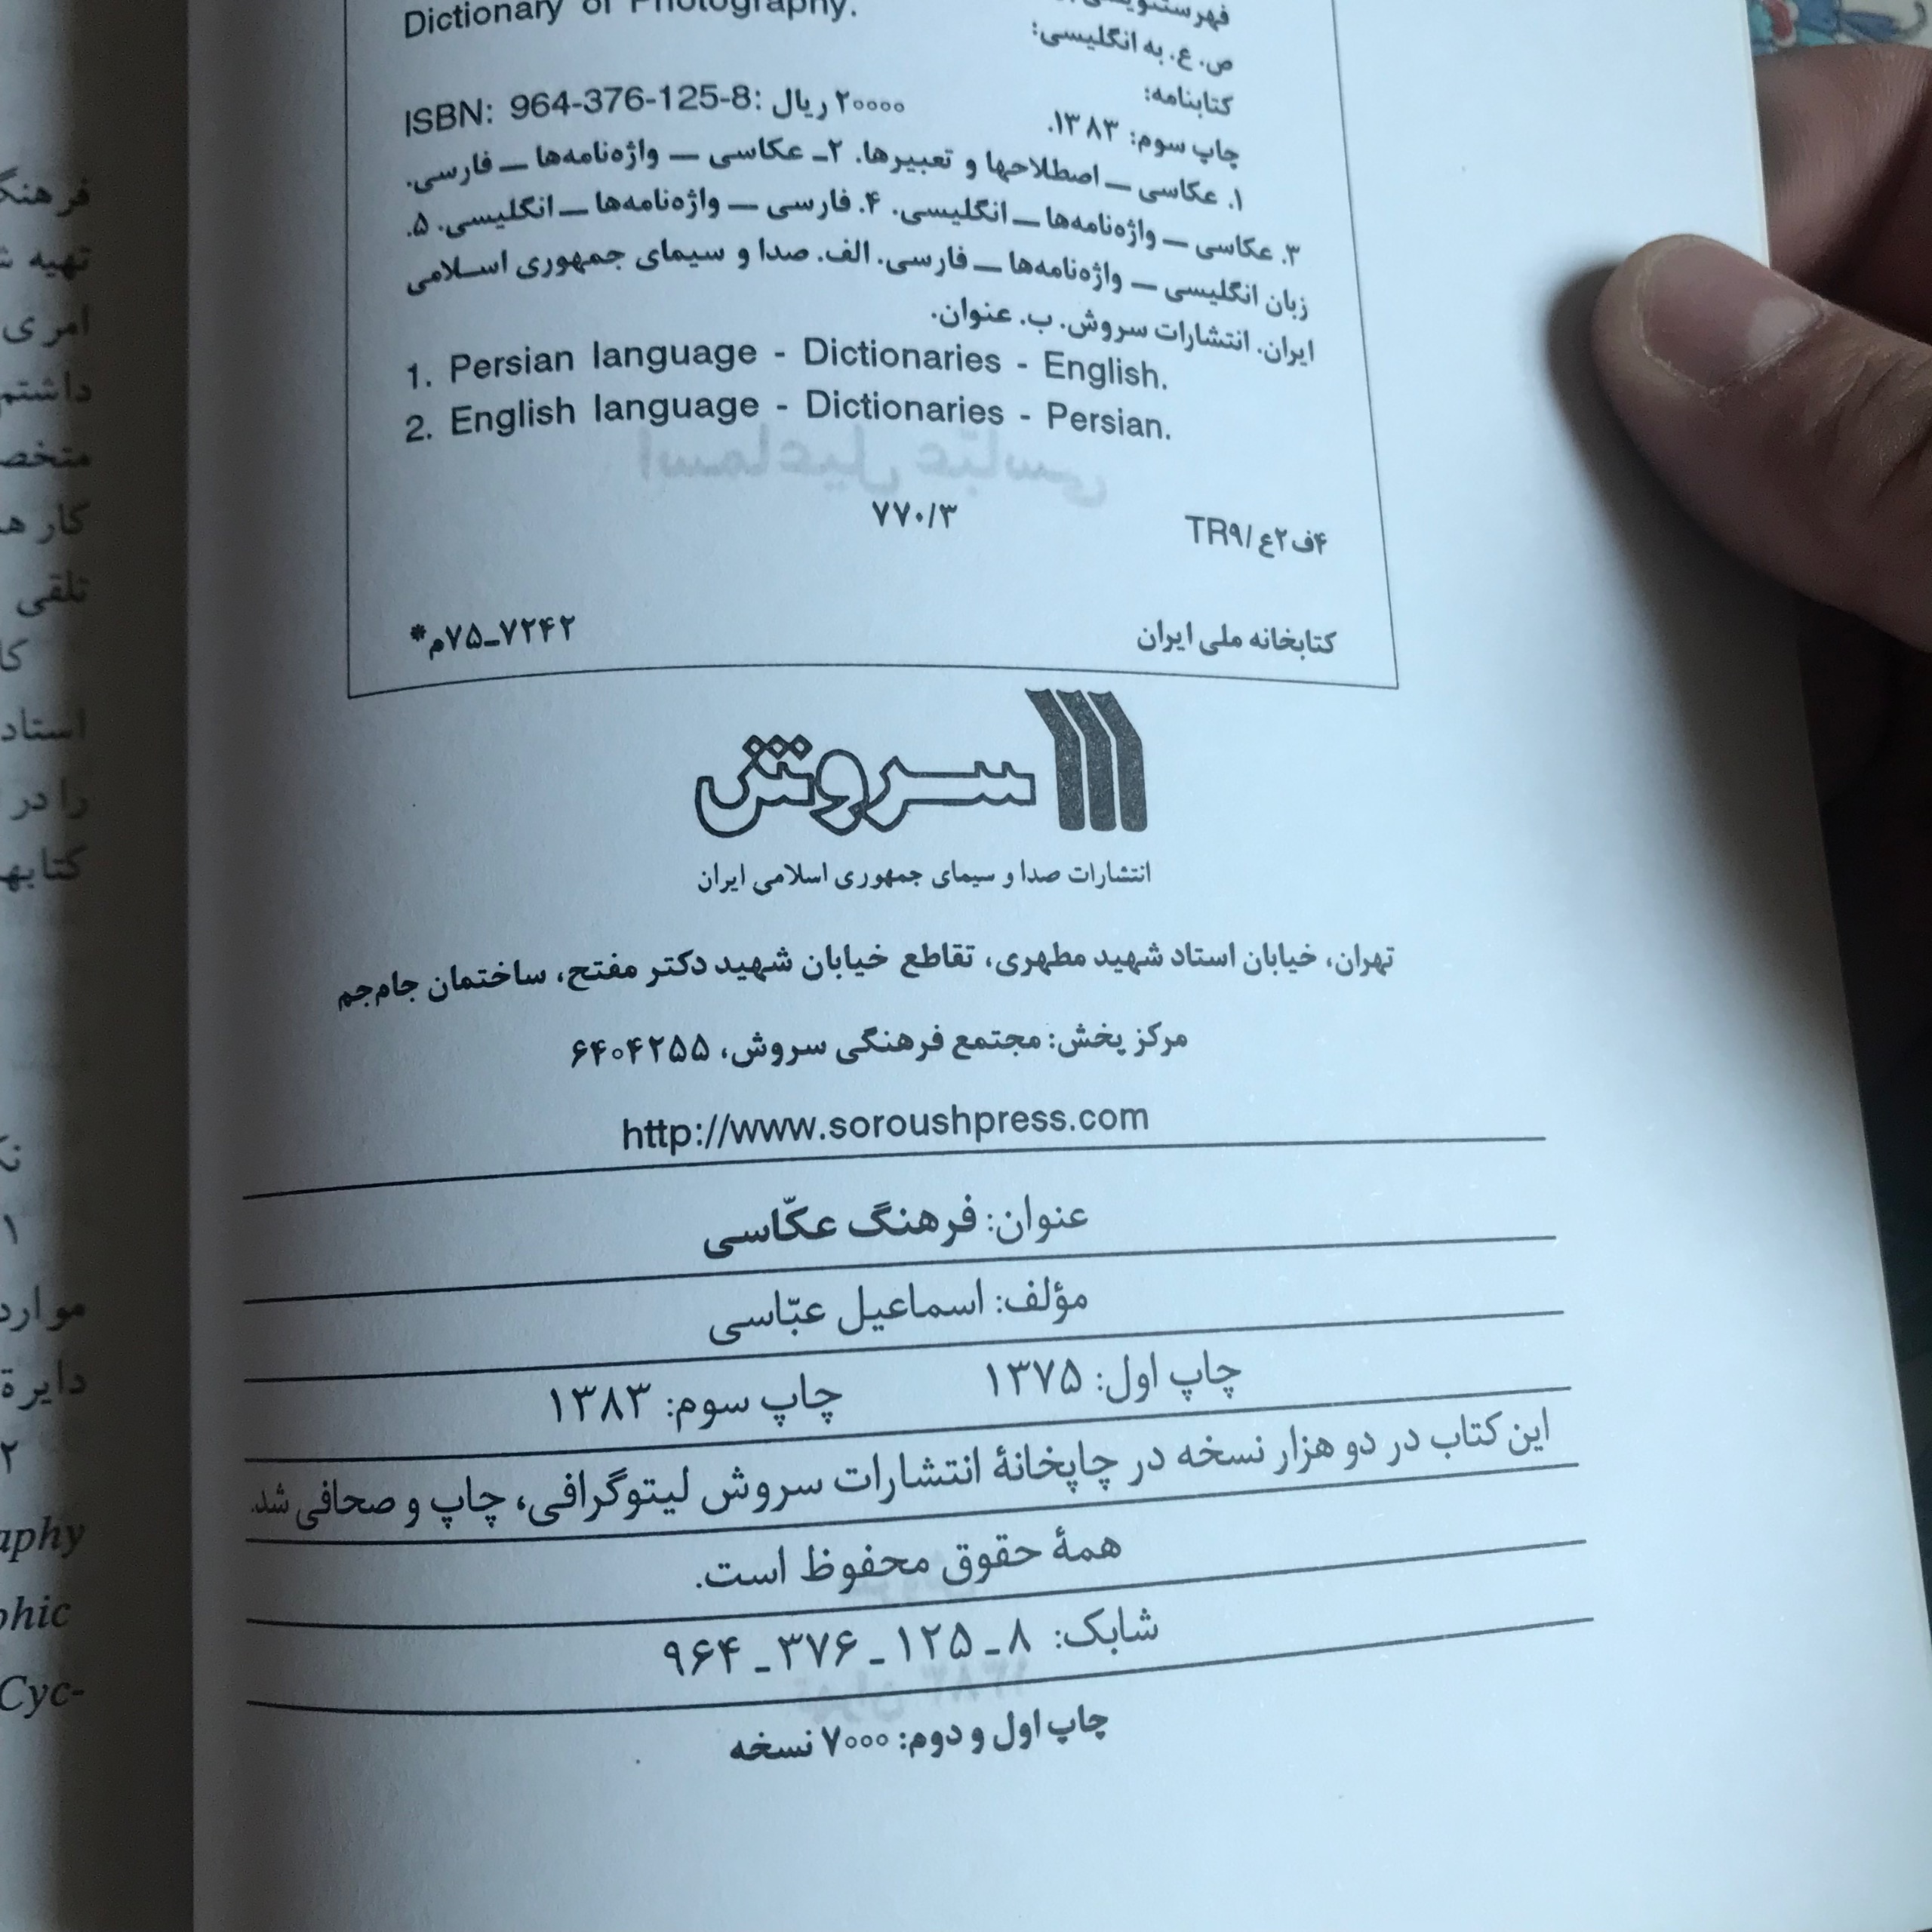 Dictionary of Photography.
ص. ع. به انگلیسی:
کتابنامه:
ISBN: 964-376-125-8: ۲۰۰۰۰ ریال
چاپ سوم: ۱۳۸۳.
۱. عکاسی ـ اصطلاحها و تعبیرها. ۲ـ عکاسی ـ واژه‌نامه‌ها ـ فارسی.
۳. عکاسی ـ واژه‌نامه‌ها ـ انگلیسی. ۴. فارسی ـ واژه‌نامه‌ها ـ انگلیسی. ۵.
زبان انگلیسی ـ واژه‌نامه‌ها ـ فارسی. الف. صدا و سیمای جمهوری اسلامی
ایران. انتشارات سروش. ب. عنوان.
1. Persian language - Dictionaries - English.
2. English language - Dictionaries - Persian.
۷۷۰/۳
۴ف۲ع/TR۹
کتابخانه ملی ایران
۷۲۴۲ـ۷۵م*
سروش
انتشارات صدا و سیمای جمهوری اسلامی ایران
تهران، خیابان استاد شهید مطهری، تقاطع خیابان شهید دکتر مفتح، ساختمان جام‌جم
مرکز پخش: مجتمع فرهنگی سروش، ۶۴۰۴۲۵۵
http://www.soroushpress.com
عنوان: فرهنگ عکّاسی
مؤلف: اسماعیل عبّاسی
چاپ اول: ۱۳۷۵ چاپ سوم: ۱۳۸۳
این کتاب در دو هزار نسخه در چاپخانهٔ انتشارات سروش لیتوگرافی، چاپ و صحافی شد.
همهٔ حقوق محفوظ است.
شابک: ۸ ـ ۱۲۵ ـ ۳۷۶ ـ ۹۶۴
چاپ اول و دوم: ۷۰۰۰ نسخه